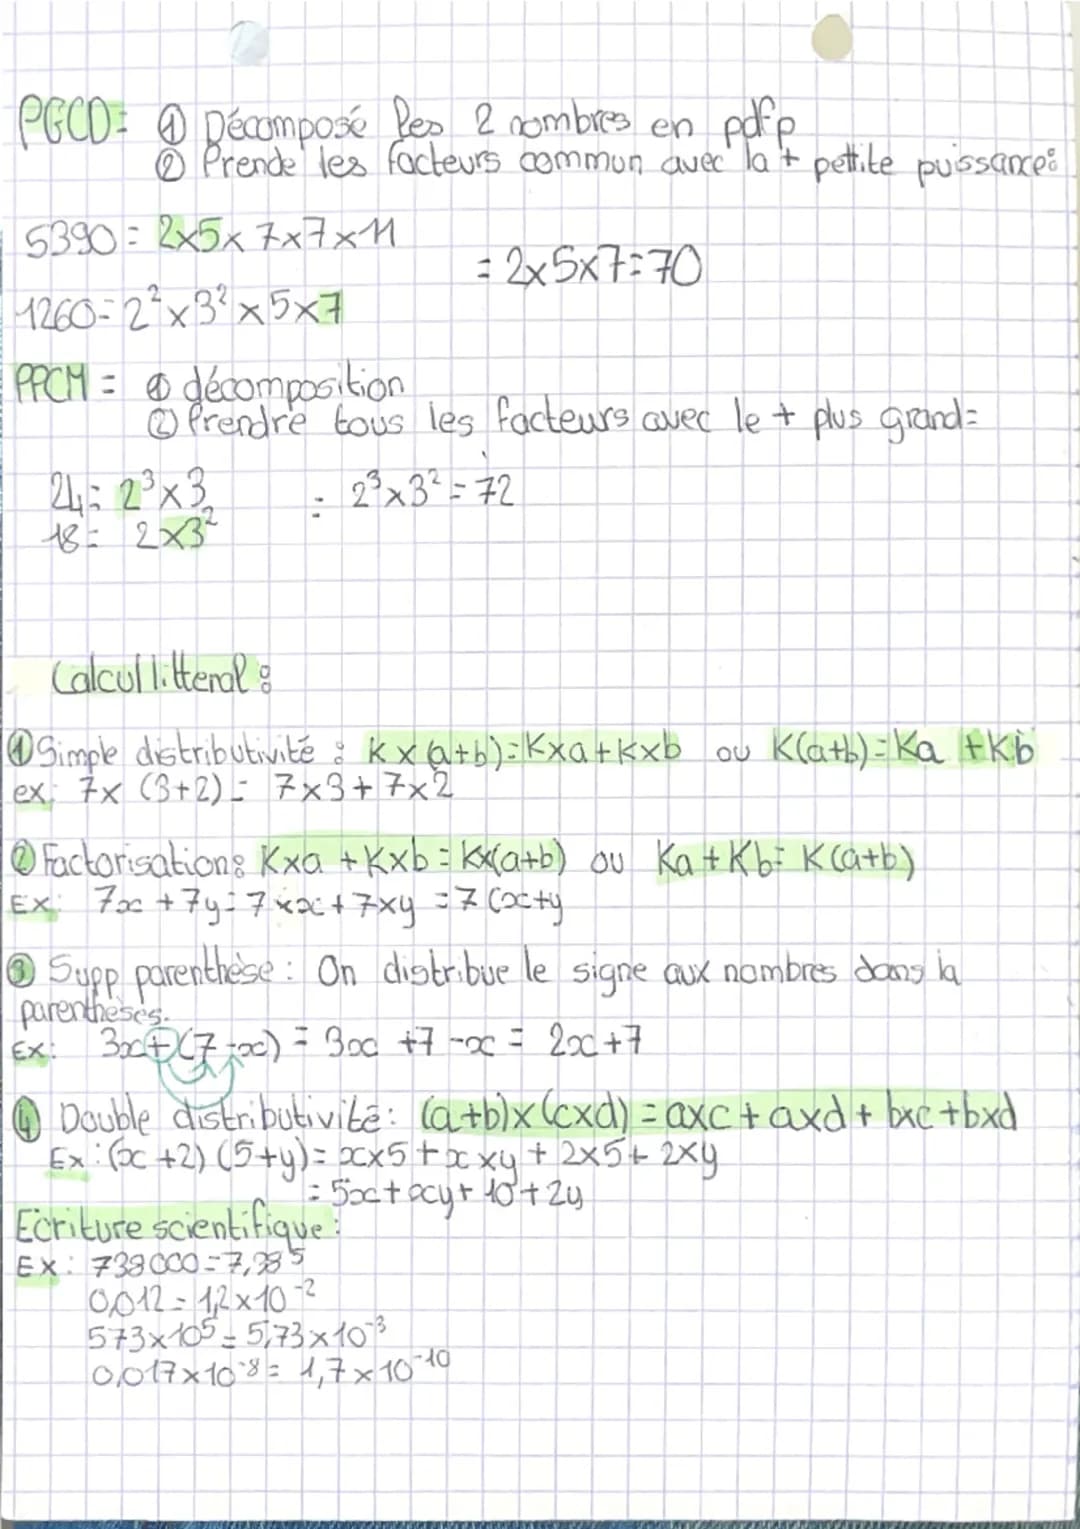 PGCD= ① Décomposé les 2 nombres en pdfp
② Prende les facteurs commun avec la + pettite puissance:
5390 = 2x5x7x7x11
= 2x5x7=70
1260=2²x3²x5x7
PPCM = ① décomposition
② Prendre tous les facteurs avec le + plus grand=
24= 2³x3
= 2³x3²=72
18= 2x3²
Calcul litteral :
① Simple distributivité : Kx(a+b)=Kxa+Kxb ou K(a+b)=Ka +Kb
ex: 7x (3+2) = 7x3+7x2
② Factorisation: Kxa +Kxb = Kx(a+b) ou Ka+Kb= K(a+b)
Ex: 7x +7y=7xx+7xy =7(x+y
③ Supp parenthèse : On distribue le signe aux nombres dans la
parenthèses.
Ex: 3x+(7-x) = 3x +7-x = 2x+7
④ Double distributivité: (a+b)x(cxd) = axc+axd+bxc+bxd
Ex :(x+2)(5+y)= xx5+xxy+2x5+2xy
= 5x+xy+10+2y
Ecriture scientifique :
Ex: 738000=7,38⁵
0,012 = 1,2x10⁻²
573x10⁵=5,73x10⁻³
0,017x10⁻⁸= 1,7x10⁻¹⁰